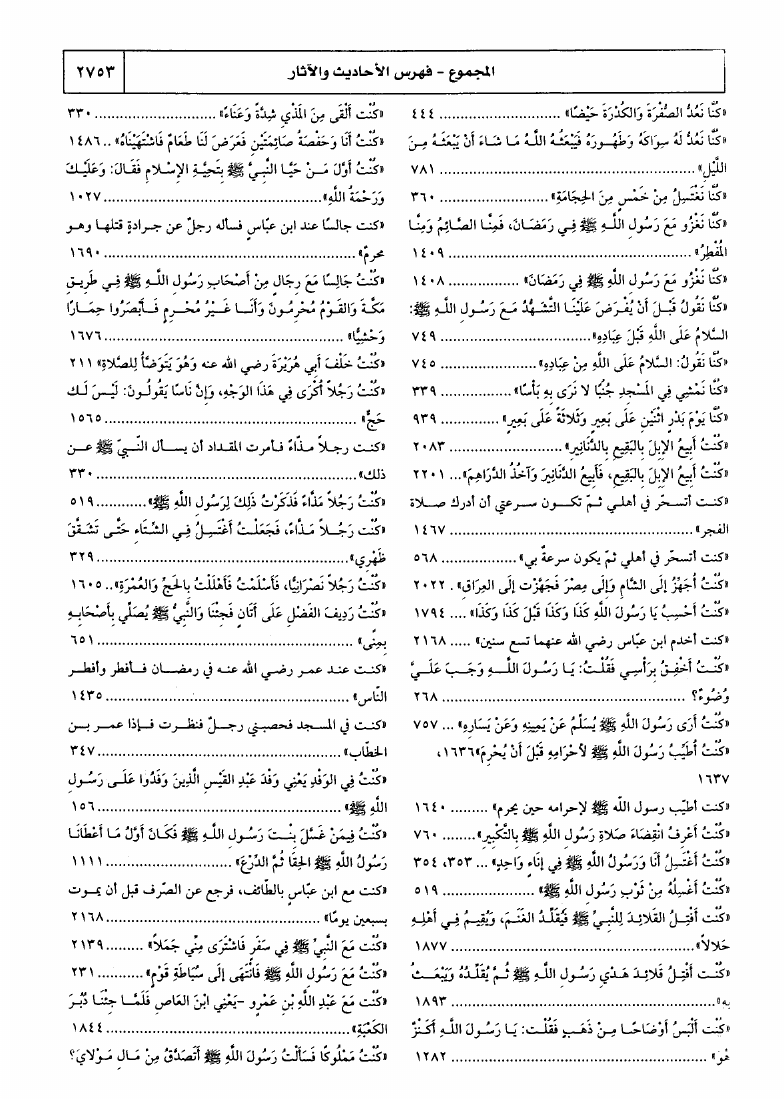 المجموع - فهرس الأحاديث والآثار
٢٧٥٣
«كُنَّا نَعُدُّ الصُّفْرَةَ وَالكُدْرَةَ حَيْضًا» ........................ ٤٤٤
«كُنَّا نَعُدُّ لَهُ سِوَاكَهُ وَطَهُورَهُ فَيَبْعَثُهُ اللَّهُ مَا شَاءَ أَنْ يَبْعَثَهُ مِنَ
اللَّيْلِ» ........................ ٧٨١
«كُنَّا نَغْتَسِلُ مِنْ خَمْسٍ مِنَ الحِجَامَةِ» ........................ ٣٦٠
«كُنَّا نَغْزُو مَعَ رَسُولِ اللَّهِ ﷺ فِي رَمَضَانَ، فَمِنَّا الصَّائِمُ وَمِنَّا
المُفْطِرُ» ........................ ١٤٠٩
«كُنَّا نَغْزُو مَعَ رَسُولِ اللَّهِ ﷺ فِي رَمَضَانَ» ................ ١٤٠٨
«كُنَّا نَقُولُ قَبْلَ أَنْ يُفْرَضَ عَلَيْنَا التَّشَهُّدُ مَعَ رَسُولِ اللَّهِ ﷺ:
السَّلامُ عَلَى اللَّهِ قَبْلَ عِبَادِهِ» ........................ ٧٤٩
«كُنَّا نَقُولُ: السَّلامُ عَلَى اللَّهِ مِنْ عِبَادِهِ» ................ ٧٤٥
«كُنَّا نَمْشِي فِي المَسْجِدِ جُنُبًا لا نَرَى بِهِ بَأْسًا» ................ ٣٣٩
«كُنَّا يَوْمَ بَدْرٍ اثْنَيْنِ عَلَى بَعِيرٍ وَثَلاثَةً عَلَى بَعِيرٍ» ................ ٩٣٩
«كُنْتُ أَبِيعُ الإِبِلَ بِالبَقِيعِ بِالدَّنَانِيرِ» ................ ٢٠٨٣
«كُنْتُ أَبِيعُ الإِبِلَ بِالبَقِيعِ، فَأَبِيعُ الدَّنَانِيرَ وَآخُذُ الدَّرَاهِمَ» ... ٢٢٠١
«كنت أتسحّر في أهلي ثمّ تكون سرعتي أن أدرك صلاة
الفجر» ........................ ١٤٦٧
«كنت أتسحّر في أهلي ثمّ يكون سرعةٌ بي» ................ ٥٦٨
«كُنْتُ أُجَهِّزُ إِلَى الشَّامِ وَإِلَى مِصْرَ فَجَهَّزْت إِلَى العِرَاقِ» . ٢٠٢٢
«كُنْتُ أَحْسِبُ يَا رَسُولَ اللَّهِ كَذَا وَكَذَا قَبْلَ كَذَا وَكَذَا» .... ١٧٩٤
«كنت أخدم ابن عبّاس رضي الله عنهما تسع سنين» ..... ٢١٦٨
«كُنْتُ أَخْفِقُ بِرَأْسِي فَقُلْتُ: يَا رَسُولَ اللَّهِ وَجَبَ عَلَيَّ
وُضُوءٌ؟ ........................ ٢٦٨
«كُنْتُ أَرَى رَسُولَ اللَّهِ ﷺ يُسَلِّمُ عَنْ يَمِينِهِ وَعَنْ يَسَارِهِ» ... ٧٥٧
«كُنْتُ أُطَيِّبُ رَسُولَ اللَّهِ ﷺ لأَحْرَامِهِ قَبْلَ أَنْ يُحْرِمَ»١٦٣٦،
١٦٣٧
«كنت أطيّب رسول اللّه ﷺ لإحرامه حين يحرم» ......... ١٦٤٠
«كُنْتُ أَعْرِفُ انْقِضَاءَ صَلاةِ رَسُولِ اللَّهِ ﷺ بِالتَّكْبِيرِ» ........ ٧٦٠
«كُنْتُ أَغْتَسِلُ أَنَا وَرَسُولُ اللَّهِ ﷺ فِي إِنَاءٍ وَاحِدٍ» ... ٣٥٣، ٣٥٤
«كُنْتُ أَغْسِلُهُ مِنْ ثَوْبِ رَسُولِ اللَّهِ ﷺ» ................ ٥١٩
«كُنْت أَفْتِلُ القَلائِدَ لِلنَّبِيِّ ﷺ فَيُقَلِّدُ الغَنَمَ، وَيُقِيمُ فِي أَهْلِهِ
حَلالاً» ........................ ١٨٧٧
«كُنْت أَفْتِلُ قَلائِدَ هَدْيِ رَسُولِ اللَّهِ ﷺ ثُمَّ يُقَلِّدُهُ وَيَبْعَثُ
به» ........................ ١٨٩٣
«كُنْت أَلْبَسُ أَوْضَاحًا مِنْ ذَهَبٍ فَقُلْت: يَا رَسُولَ اللَّهِ أَكَنْزٌ
هُوَ» ........................ ١٢٨٢
«كُنْت أَلْقَى مِنَ المَذْيِ شِدَّةً وَعَنَاءً» ........................ ٣٣٠
«كُنْتُ أَنَا وَحَفْصَةُ صَائِمَتَيْنِ فَعَرَضَ لَنَا طَعَامٌ فَاشْتَهَيْنَاهُ» .. ١٤٨٦
«كُنْتُ أَوَّلَ مَنْ حَيَّا النَّبِيَّ ﷺ بِتَحِيَّةِ الإِسْلامِ فَقَالَ: وَعَلَيْكَ
وَرَحْمَةُ اللَّهِ» ........................ ١٠٢٧
«كنت جالسًا عند ابن عبّاسٍ فسأله رجلٌ عن جرادةٍ قتلها وهو
محرمٌ» ........................ ١٦٩٠
«كُنْتُ جَالِسًا مَعَ رِجَالٍ مِنْ أَصْحَابِ رَسُولِ اللَّهِ ﷺ فِي طَرِيقِ
مَكَّةَ وَالقَوْمُ مُحْرِمُونَ وَأَنَا غَيْرُ مُحْرِمٍ فَأَبْصَرُوا حِمَارًا
وَحْشِيًّا» ........................ ١٦٧٦
«كُنْتُ خَلْفَ أَبِي هُرَيْرَةَ رضي الله عنه وَهُوَ يَتَوَضَّأُ لِلصَّلاةِ» ٢١١
«كُنْتُ رَجُلاً أُكْرَى فِي هَذَا الوَجْهِ، وَإِنَّ نَاسًا يَقُولُونَ: لَيْسَ لَك
حَجٌّ» ........................ ١٥٦٥
«كنت رجلاً مذّاءً فأمرت المقداد أن يسأل النّبيّ ﷺ عن
ذلك» ........................ ٣٣٠
«كُنْتُ رَجُلاً مَذَّاءً فَذَكَرْتُ ذَلِكَ لِرَسُولِ اللَّهِ ﷺ» ............ ٥١٩
«كُنْت رَجُلاً مَذَّاءً، فَجَعَلْتُ أَغْتَسِلُ فِي الشِّتَاءِ حَتَّى تَشَقَّقَ
ظَهْرِي» ........................ ٣٢٩
«كُنْتُ رَجُلاً نَصْرَانِيًّا، فَأَسْلَمْتُ فَأَهْلَلْتُ بِالحَجِّ وَالعُمْرَةِ» .. ١٦٠٥
«كُنْتُ رَدِيفَ الفَضْلِ عَلَى أَتَانٍ فَجِئْنَا وَالنَّبِيُّ ﷺ يُصَلِّي بِأَصْحَابِهِ
بِمِنًى» ........................ ٦٥١
«كنت عند عمر رضي الله عنه في رمضان فأفطر وأفطر
النّاس» ........................ ١٤٣٥
«كنت في المسجد فحصبني رجلٌ فنظرت فإذا عمر بن
الخطّاب» ........................ ٣٤٧
«كُنْتُ فِي الوَفْدِ يَعْنِي وَفْدَ عَبْدِ القَيْسِ الَّذِينَ وَفَدُوا عَلَى رَسُولِ
اللَّهِ ﷺ» ........................ ١٥٦
«كُنْتُ فِيمَنْ غَسَّلَ بِنْتَ رَسُولِ اللَّهِ ﷺ فَكَانَ أَوَّلُ مَا أَعْطَانَا
رَسُولُ اللَّهِ ﷺ الحِقَا ثُمَّ الدِّرْعَ» ................ ١١١١
«كنت مع ابن عبّاس بالطّائف، فرجع عن الصّرف قبل أن يموت
بسبعين يومًا» ........................ ٢١٦٨
«كُنْت مَعَ النَّبِيِّ ﷺ فِي سَفَرٍ فَاشْتَرَى مِنِّي جَمَلاً» ......... ٢١٣٩
«كُنْت مَعَ رَسُولِ اللَّهِ ﷺ فَانْتَهَى إِلَى سُبَاطَةِ قَوْمٍ» ........... ٢٣١
«كُنْت مَعَ عَبْدِ اللَّهِ بْنِ عَمْرٍو -يَعْنِي ابْنَ العَاصِ فَلَمَّا جِئْنَا دُبُرَ
الكَعْبَةِ» ........................ ١٨٤٤
«كُنْتُ مَمْلُوكًا فَسَأَلْتُ رَسُولَ اللَّهِ ﷺ أَتَصَدَّقُ مِنْ مَالِ مَوْلايَ؟